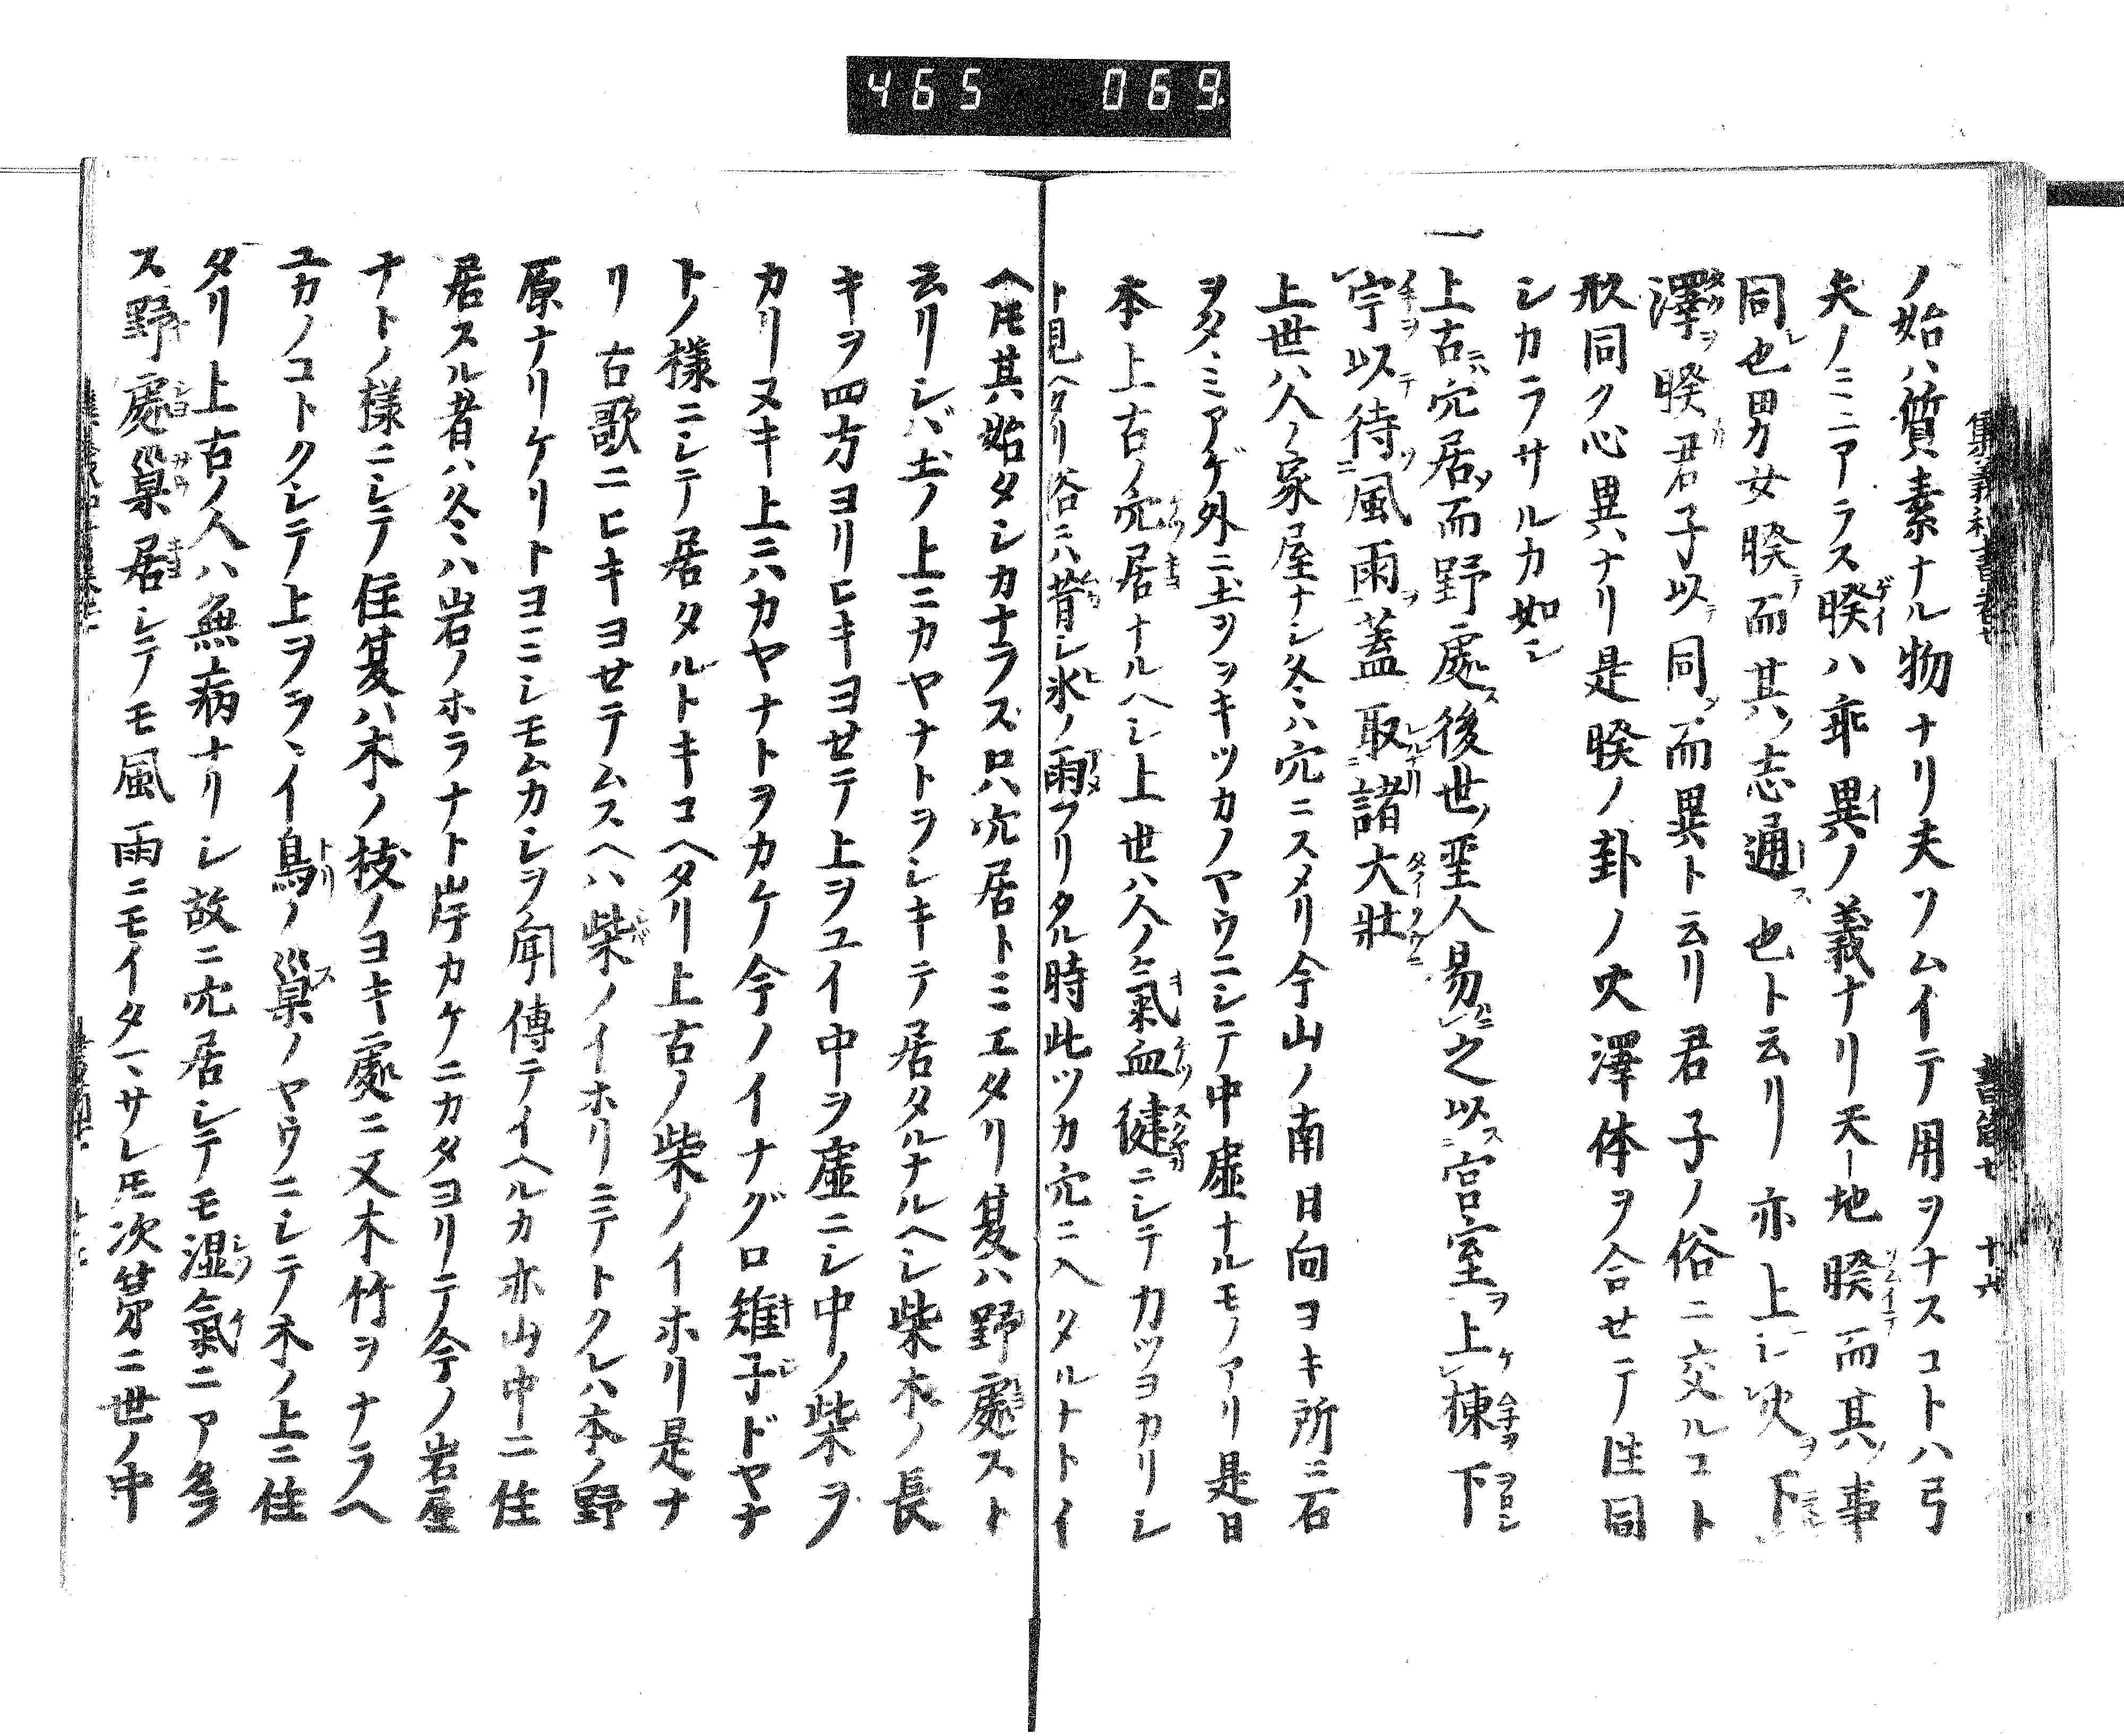 465 069
ノ始ハ質素ナル物ナリ夫ソムイテ用ヲナスコトハ弓
矢ノミニアラス睽ハ乖異ノ義ナリ天地睽而其事
同也男女睽而其志通也ト云リ亦上ニ火下ニ
澤睽君子以同而異ト云リ君子ノ俗ニ交ルコト
形同ク心異ナリ是睽ノ卦ノ火澤体ヲ合セテ性同
シカラサルカ如シ
一上古穴居而野處後世聖人易之以宮室上棟下
宇以待風雨蓋取諸大壯
上世ハ人ノ家屋ナシ冬ハ穴ニスメリ今山ノ南日向ヨキ所ニ石
ヲタヽミアゲ外ニ土ヲツキツカノヤウニシテ中虚ナルモノアリ是日
本上古ノ穴居ナルヘシ上世ハ人ノ氣血健ニシテカツヨカリシ
ト見ヘタリ俗ニハ昔シ氷ノ雨フリタル時此ツカ穴ニ入タルナトイ
ヘ𪜈其始タシカナラズ只穴居トミエタリ夏ハ野處スト
云リシバ𡈽ノ上ニカヤナトヲシキテ居タルナルヘシ柴木ノ長
キヲ四方ヨリヒキヨセテ上ヲユイ中ヲ虚ニシ中ノ柴ヲ
カリヌキ上ニハカヤナトヲカケ今ノイナグロ雉子ドヤナ
トノ様ニシテ居タルトキコヘタリ上古ノ柴ノイホリ是ナ
リ古歌ニヒキヨセテムスヘハ柴ノイホリニテトクレハ本ノ野
原ナリケリトヨミシモムカシヲ聞傳テイヘルカ亦山中ニ住
居スル者ハ冬ハ岩ノホラナト岸カケニカタヨリテ今ノ岩屋
ナトノ様ニシテ住夏ハ木ノ枝ノヨキ處ニ又木竹ヲナラヘ
ユカノコトクシテ上ヲヲヽイ鳥ノ巢ノヤウニシテ木ノ上ニ住
タリ上古ノ人ハ無病ナリシ故ニ穴居シテモ湿氣ニア多ラ
ス野處巢居シテモ風雨ニモイタマサレ𪜈次第ニ世ノ中